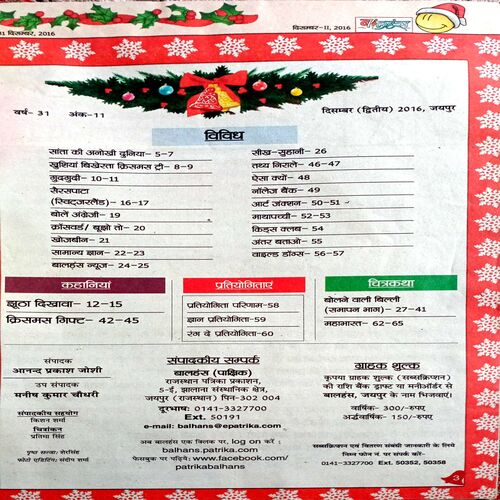 31 दिसम्बर, 2016
दिसम्बर-II, 2016
वर्ष- 31 अंक-11
दिसम्बर (द्वितीय) 2016, जयपुर
विविध
सांता की अनोखी दुनिया- 5-7
खुशियां बिखेरता क्रिसमस ट्री- 8-9
गुदगुदी- 10-11
सैरसपाटा
(स्विट्जरलैंड)- 16-17
बोलें अंग्रेजी- 19
क्रॉसवर्ड/ बूझो तो- 20
खोजबीन- 21
सामान्य ज्ञान- 22-23
बालहंस न्यूज- 24-25
सीख-सुहानी- 26
तथ्य निराले- 46-47
ऐसा क्यों- 48
नॉलेज बैंक- 49
आर्ट जंक्शन- 50-51
माथापच्ची- 52-53
किड्स क्लब- 54
अंतर बताओ- 55
वाइल्ड डॉग्स- 56-57
कहानियां
झूठा दिखावा- 12-15
क्रिसमस गिफ्ट- 42-45
प्रतियोगिताएं
प्रतियोगिता परिणाम-58
ज्ञान प्रतियोगिता-59
रंग दें प्रतियोगिता-60
चित्रकथा
बोलने वाली बिल्ली
(समापन भाग)- 27-41
महाभारत- 62-65
संपादक
आनन्द प्रकाश जोशी
उप संपादक
मनीष कुमार चौधरी
संपादकीय सहयोग
किशन शर्मा
चित्रांकन
प्रतिमा सिंह
पृष्ठ सज्जा: शेरसिंह
फोटो एडिटिंग: संदीप शर्मा
संपादकीय सम्पर्क
बालहंस (पाक्षिक)
राजस्थान पत्रिका प्रकाशन,
5-ई, झालाना संस्थानिक क्षेत्र,
जयपुर (राजस्थान) पिन-302 004
दूरभाष: 0141-3327700
Ext. 50191
e-mail: balhans@epatrika.com
अब बालहंस एक क्लिक पर, log on करें :
balhans.patrika.com
फेसबुक पर पढ़िये: www.facebook.com/
patrikabalhans
ग्राहक शुल्क
कृपया ग्राहक शुल्क (सब्सक्रिप्शन)
की राशि बैंक ड्राफ्ट या मनीऑर्डर से
बालहंस, जयपुर के नाम भिजवाएं।
वार्षिक- 300/-रुपए
अर्द्धवार्षिक- 150/-रुपए
सब्सक्रिप्शन एवं वितरण संबंधी जानकारी के लिये
निम्न फोन नं. पर संपर्क करें-
0141-3327700 Ext. 50352, 50358
3